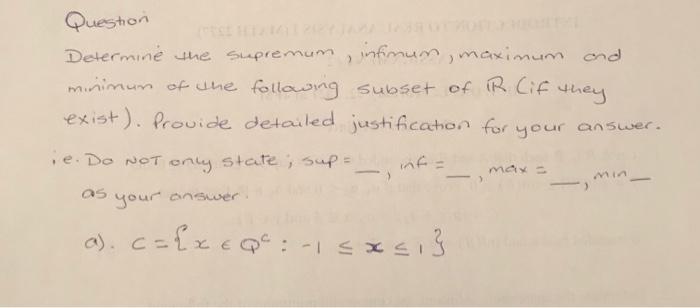 Question
Determine the supremum, infimum, maximum and
minimum of the following subset of ℝ (if they
exist). Provide detailed justification for your answer.
i.e. Do NOT only state; sup = _, inf = _, max = _, min _
as your answer.
a). C = {x ∈ ℚᶜ : -1 ≤ x ≤ 1}